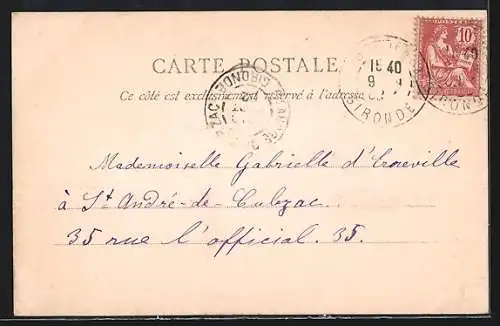 CARTE POSTALE
Ce côté est exclusivement réservé à l'adresse
10
15 40
9
GIRONDE
GIRONDE
Mademoiselle Gabrielle d'Croville
à St André-de-Cubzac
35 rue l'official. 35.